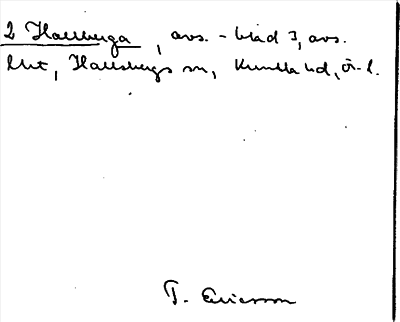 2 Hallberga, avs. - blad 3, avs.
Hallsbergs sn, Kumla hd, Ör. l.
T. Ericsson